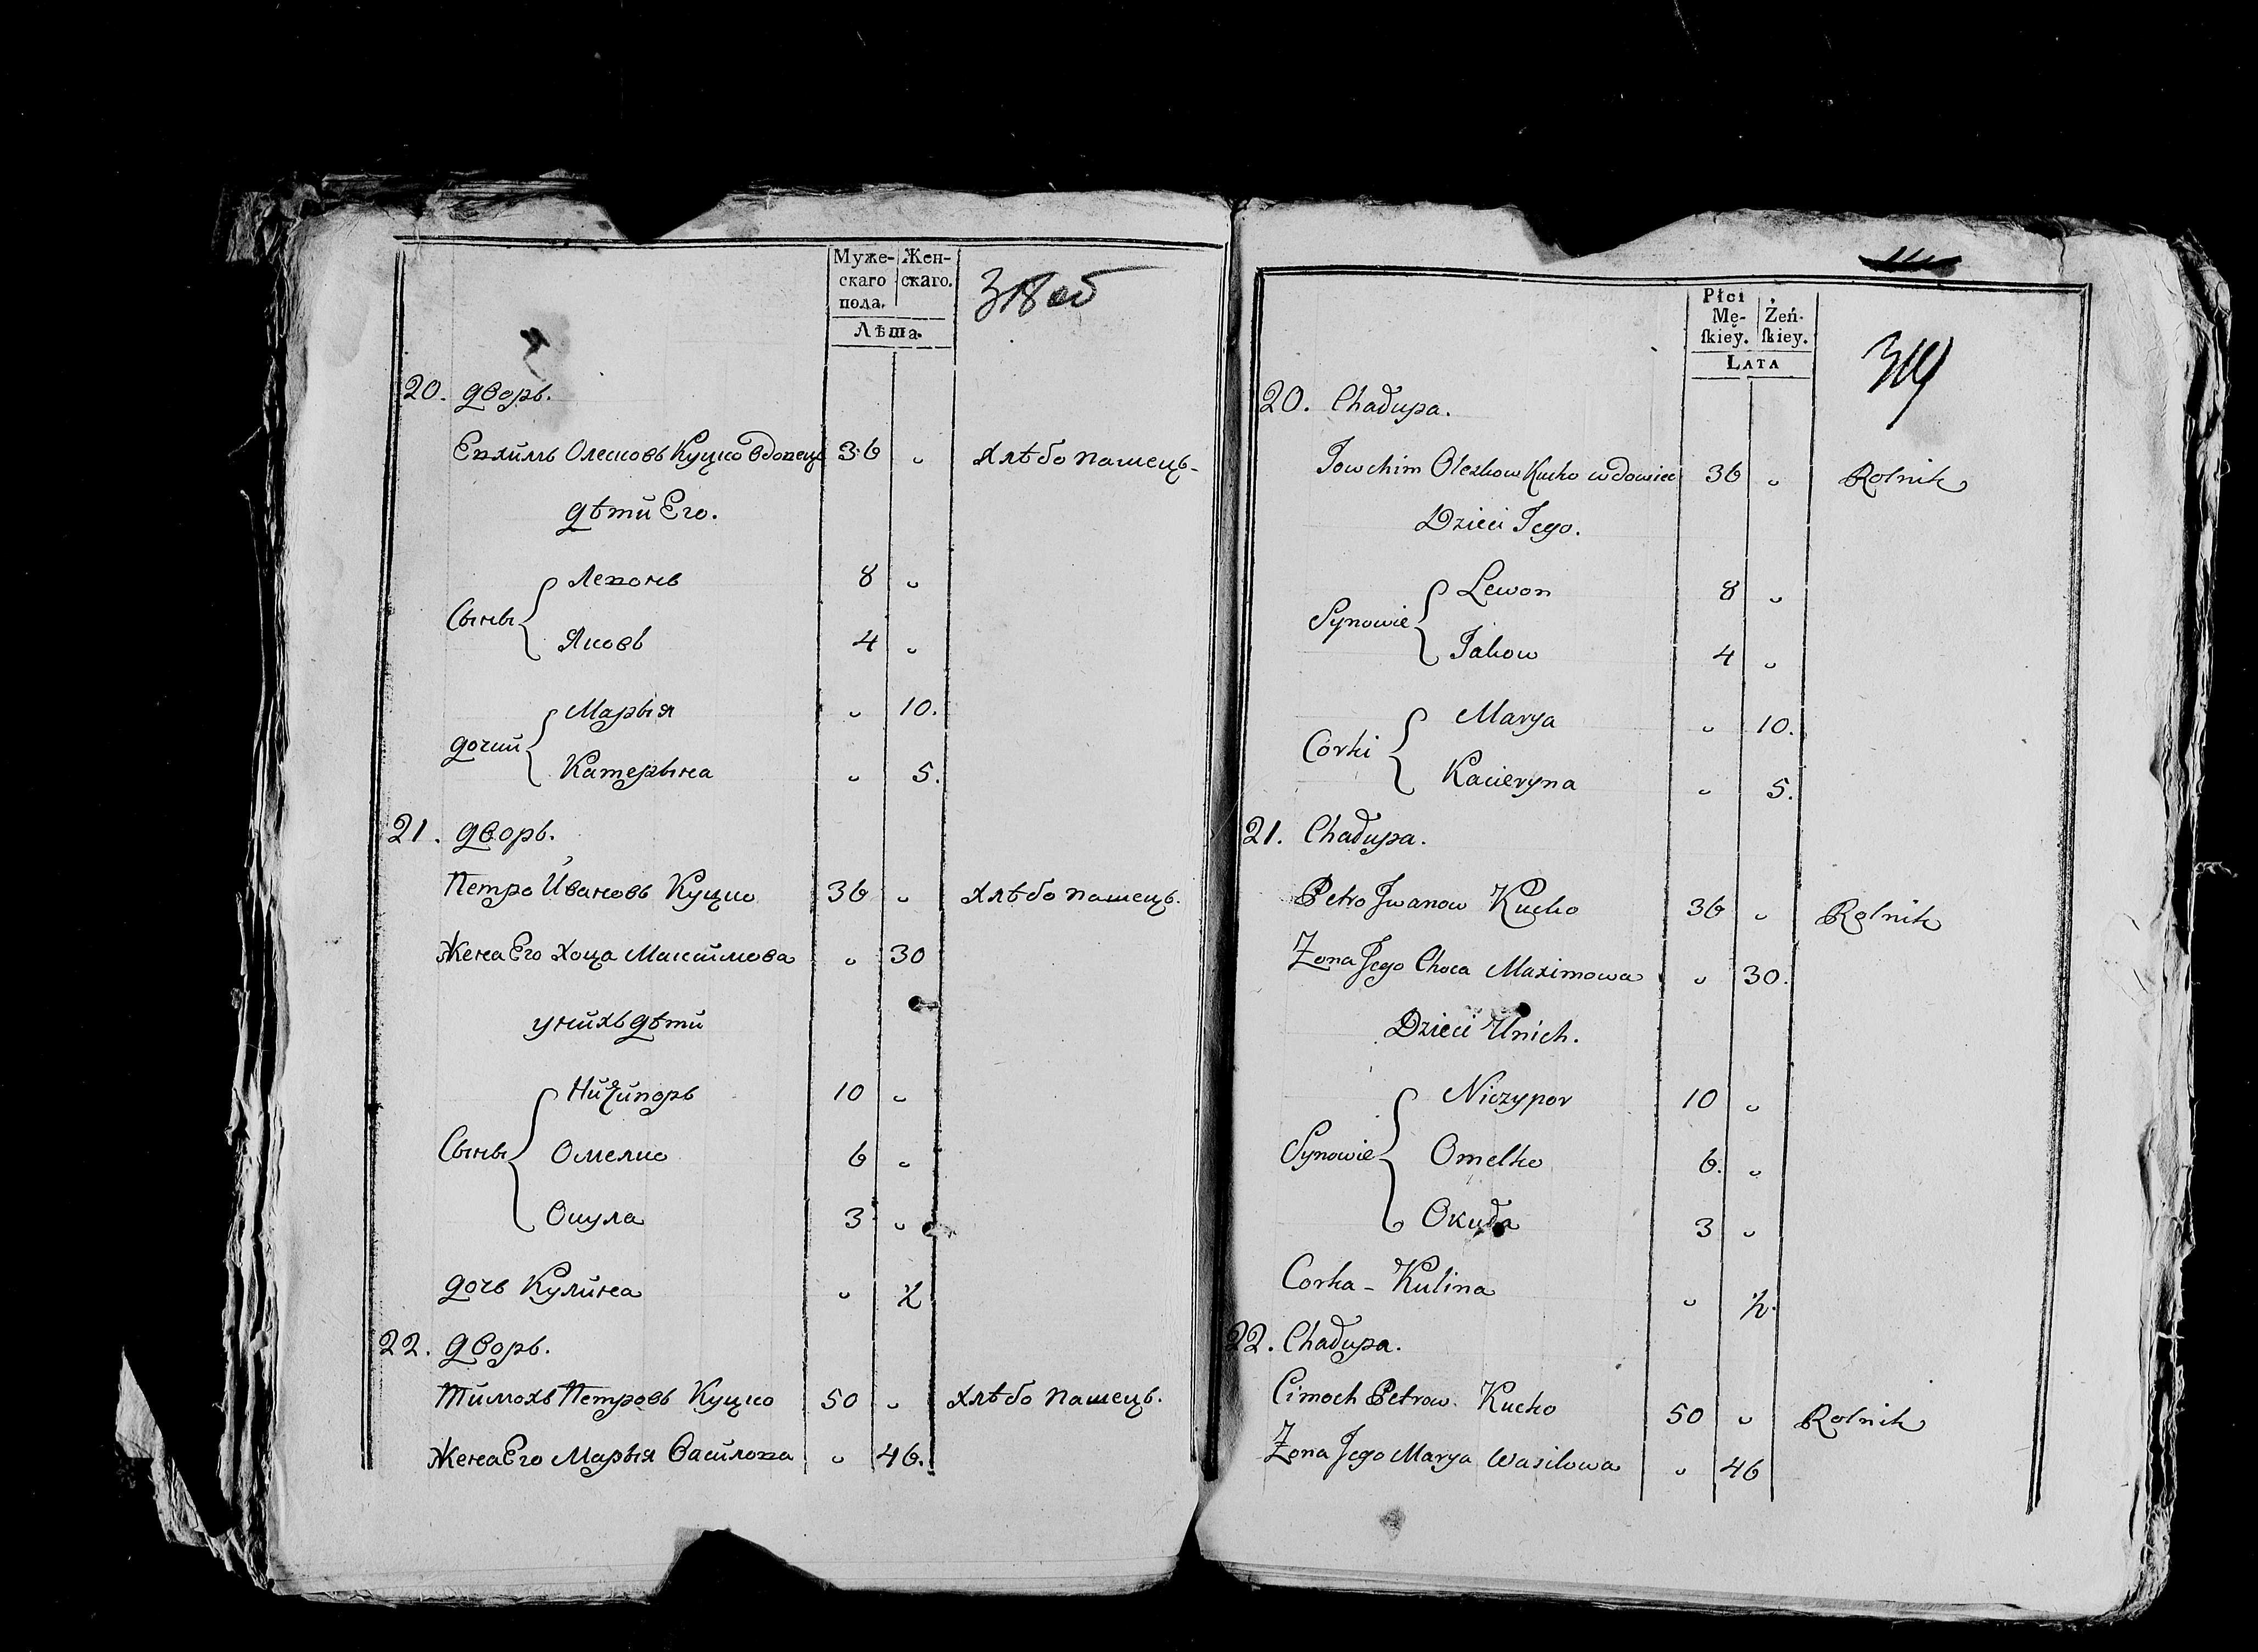 Муже-
скаго
пола.
Жен-
скаго.
Лѣта.
318 об
20. дворъ.
Евхимъ Олешковъ Куцко вдовець 36 „ хлѣбо пашець.
дѣти Его.
Сыны { Левонъ 8 „
Яковъ 4 „
дочии { Марыя „ 10.
Катерына „ 5.
21. дворъ.
Петро Ивановъ Куцко 36 „ хлѣбо пашець.
Жена Его Хоца Максимова „ 30
у нихъ дѣти
Сыны { Ничипоръ 10 „
Омелко 6 „
Окула 3 „
дочь Кулина „ ½
22. дворъ.
Тимохъ Петровъ Куцко 50 „ хлѣбо пашець.
Жена Его Марыя Василова „ 46.
Płci
Mę-
ſkieẏ.
Żeń-
ſkiey.
LATA
319
20. Chałupa.
Jowchim Oleszkow Kucko wdowiec 36 „ Rolnik
Dzieci Jego.
Synowie { Lewon 8 „
Jakow 4 „
Córki { Marya „ 10.
Kacieryna „ 5.
21. Chałupa.
Petro Jwanow Kucko 36 „ Rolnik
Żona Jego Choca Maximowa „ 30.
Dzieci Unich.
Synowie { Niczypor 10 „
Omelko 6. „
Okuła 3 „
Corka - Kulina „ ½.
22. Chałupa.
Cimoch Petrow. Kucko 50 „ Rolnik
Żona Jego Marya Wasilowa „ 46